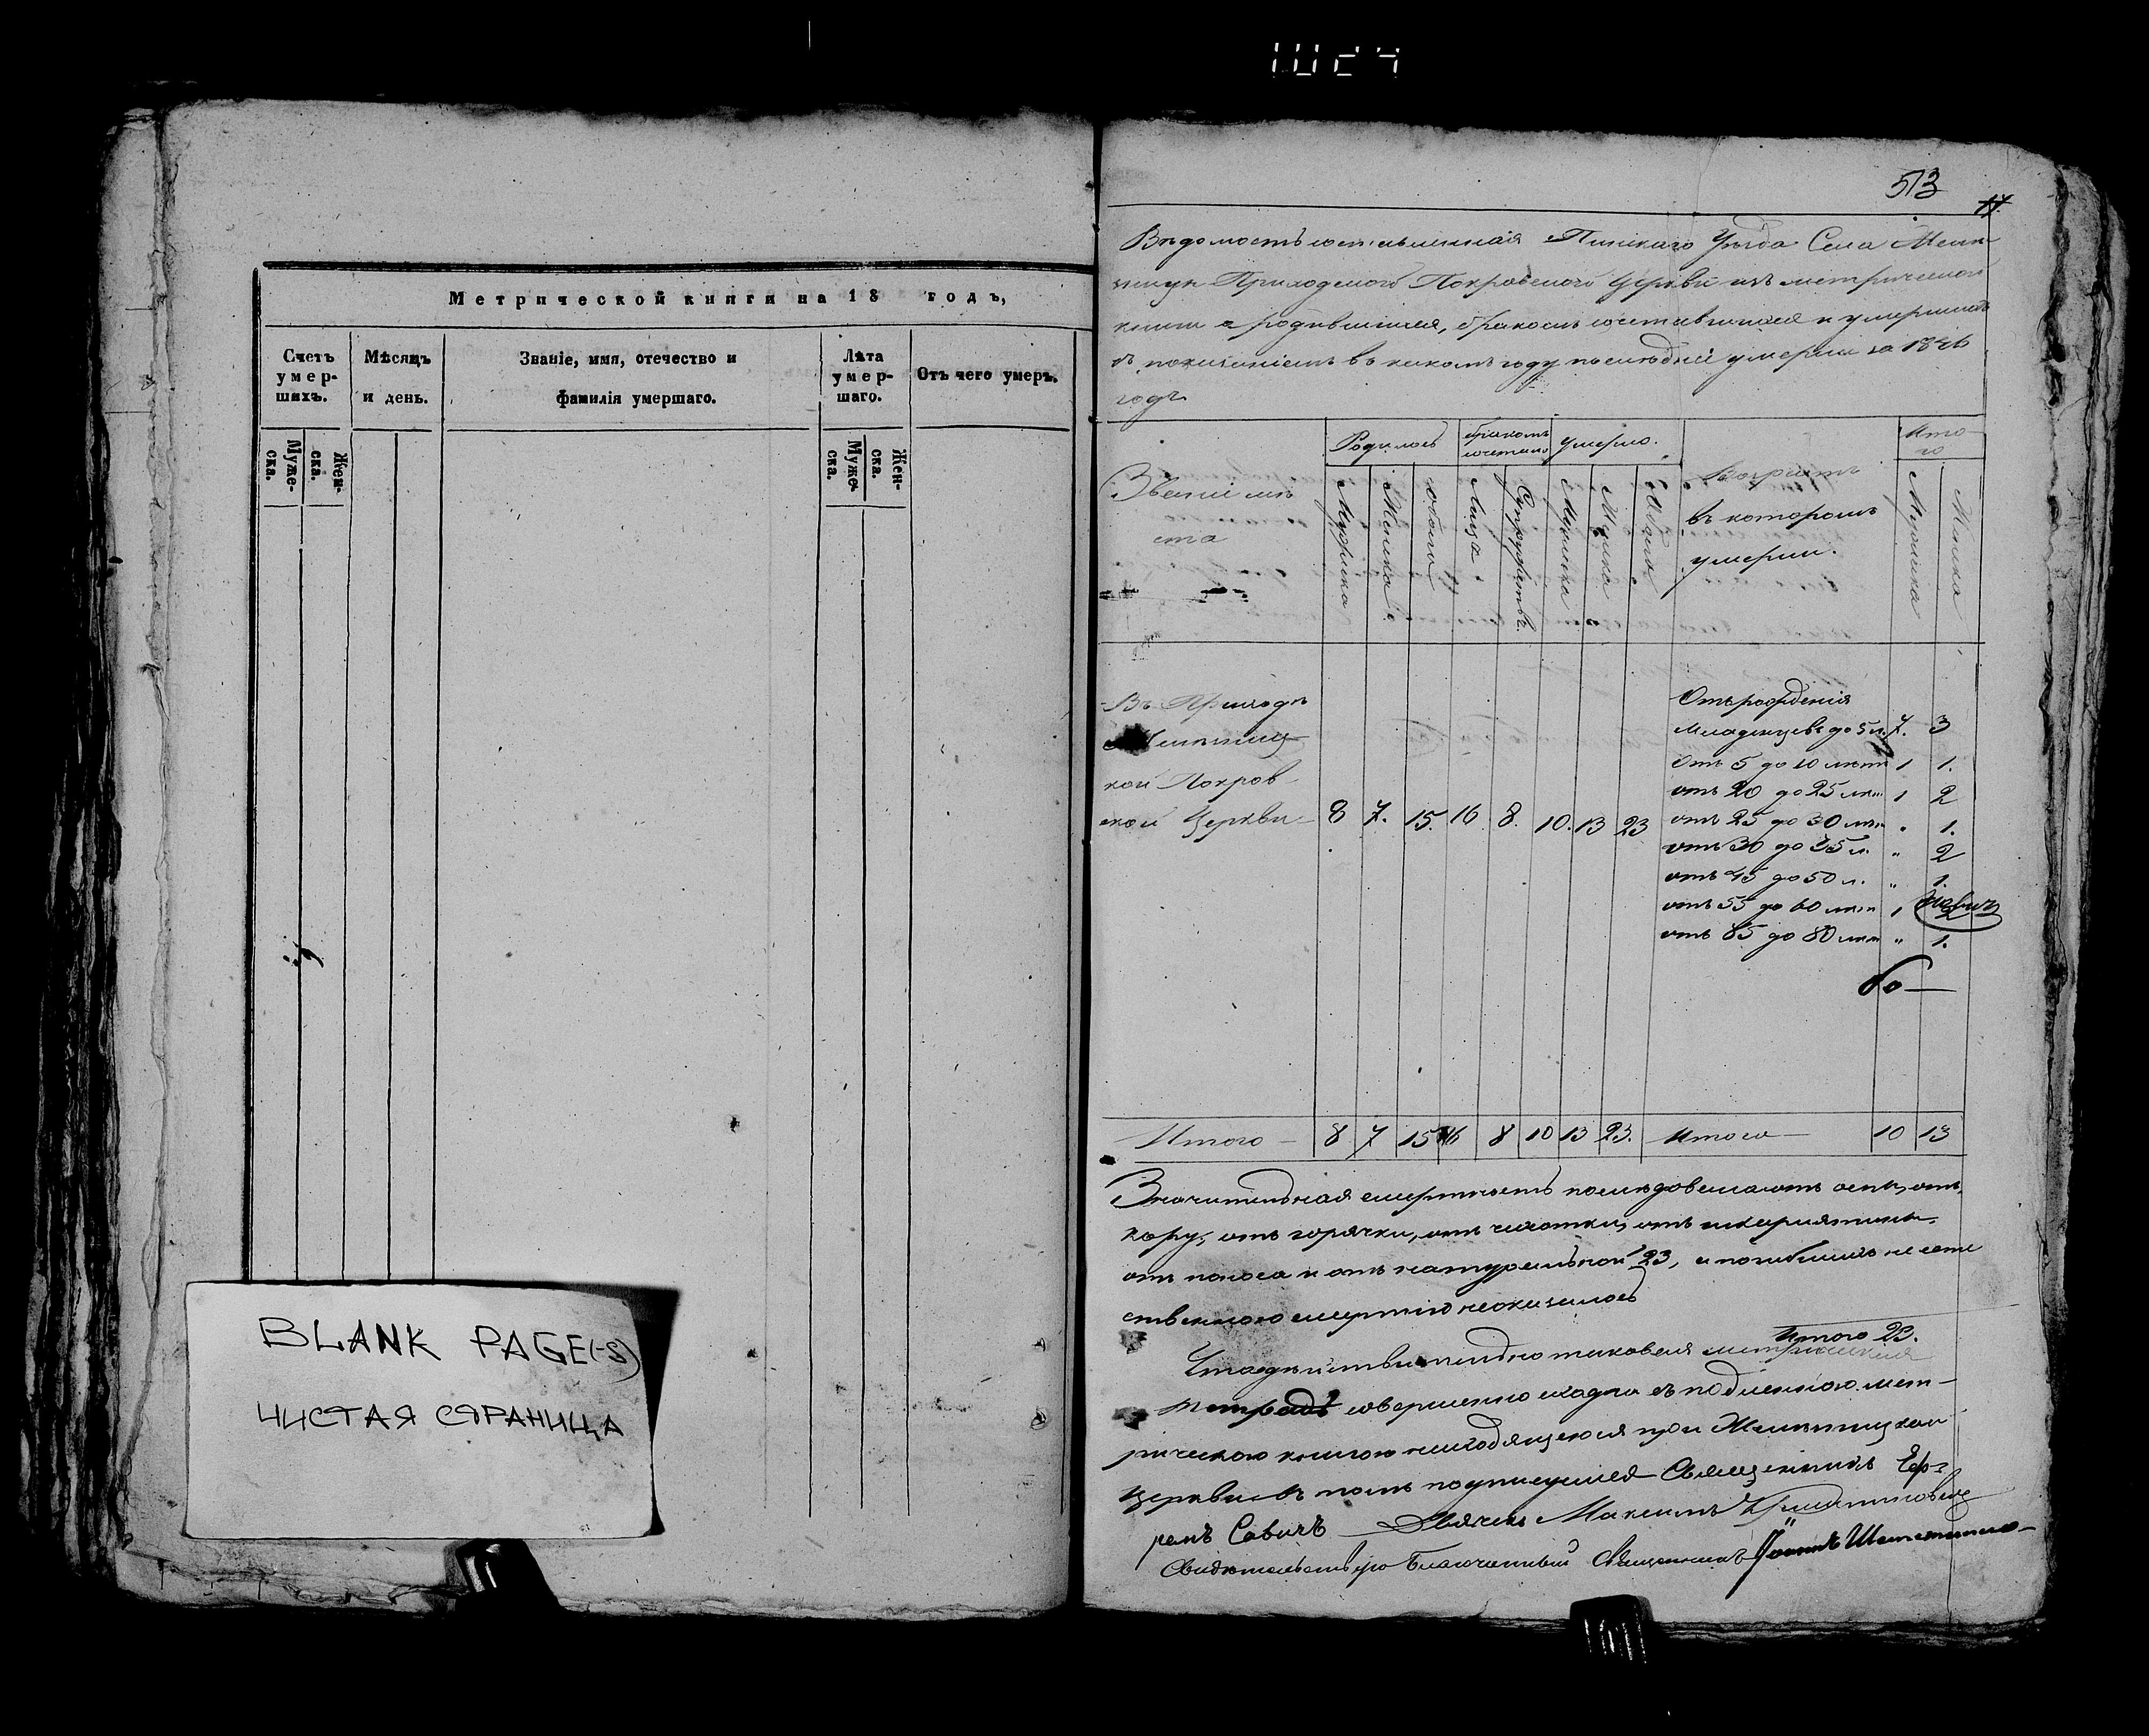 1024
Метрической книги на 18 годъ,
Счетъ умер-шихъ.
Муже-ска.
Жен-ска.
Мѣсяцъ и день.
Званіе, имя, отечество и
фамилія умершаго.
Лѣта умер-шаго.
Муже-ска.
Жен-ска.
Отъ чего умеръ.
BLANK PAGE(-S)
ЧИСТАЯ СТРАНИЦА
513
17.
Вѣдомость составленная Пинскаго Уѣзда Села
Приходской Покровской Церкви изъ метрической
книги о родившихся, бракомъ сочетавшихся и умершихъ
съ показаніемъ въ какомъ году послѣдніи умерли за 1846
годъ
Званіе мѣ
ста
Родилось
бракомъ
сочетано
умерло.
Возрастъ
въ которомъ
умерли.
Ито
го
Мужеска
Женска
Обоего
Лица
Супружествъ.
Мужеска
Женска
Обоего
Мужеска
Женска
Въ Приходѣ
кой Покров
ской Церкви 8 7. 15. 16 8. 10. 13 23
Отъ рожденія
Младенцевъ до 5 л. 7. 3
Отъ 5 до 10 лѣтъ 1 1.
отъ 20 до 25 лѣт 1 2
отъ 25 до 30 лѣт " 1.
отъ 30 до 35 л. " 2
отъ 45 до 50 л. " 1.
отъ 55 до 60 лѣт 1 2
отъ 85 до 80 лѣт " 1.
Итого 8 7 15 16 8 10 13 23. Итого 10 13
Значительная смертность послѣдовала отъ оспы, отъ
кору, отъ горячки, отъ чахотки, отъ шкарлятины
отъ поноса и отъ натуральной 23, а погибшихъ не есте
ственною смертію неоказалось
Итого 23.
Что дѣйствительно таковая метрическая
тетрадь совершенно сходна съ подленною мет-
рическою книгою находящеюся при
церкви въ томъ подписуемся Священникъ Еф-
ремъ Савичъ Дьячекъ Максимъ
Свидѣтельствую Благочинный Священникъ Іоаннъ